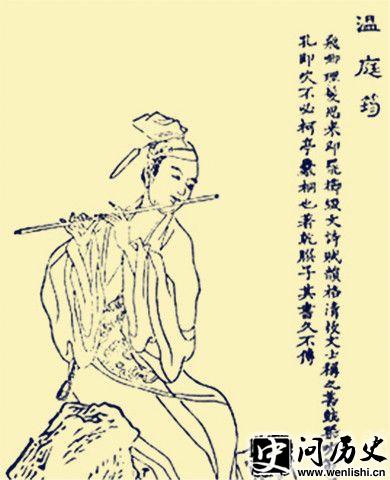 温庭筠
飛卿理髮思来即罷櫛綴文詩賦韻格清拔文士稱之善鼓琴
孔即吹不必柯亭爨桐也著乾䐑子其書久不傳
史 问历史
www.wenlishi.cn